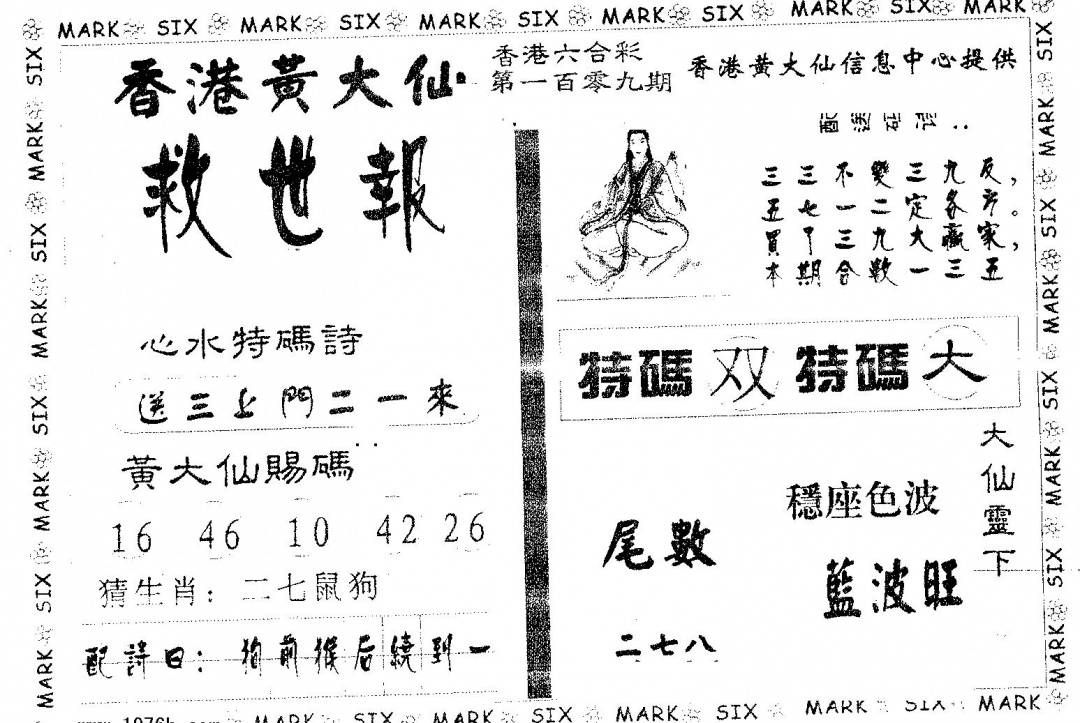 MARK SIX MARK SIX MARK SIX MARK SIX MARK SIX MARK
香港黃大仙
救世報
香港六合彩
第一百零九期
香港黄大仙信息中心提供
三三不變三九反，
五七一二定各方。
買中三九大贏家，
本期合數一三五
心水特碼詩
送三上門二一來
黃大仙賜碼
16 46 10 42 26
猜生肖：二七鼠狗
配詩曰：狗前猴后繞到一
特碼 双 特碼 大
大仙靈下
穩座色波
藍波旺
尾數
二七八
SIX MARK SIX MARK SIX MARK SIX MARK
MARK SIX MARK SIX MARK SIX MARK SIX MARK
MARK SIX MARK SIX MARK SIX MARK SIX MARK